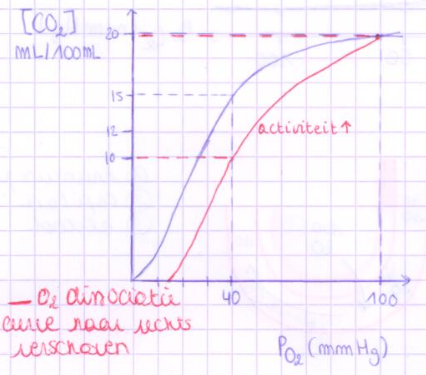 [CO₂]
mL/100mL
20
15
12
10
activiteit ↑
40
100
— O₂ dissociatie
curve naar rechts
verschoven
P_O₂ (mmHg)